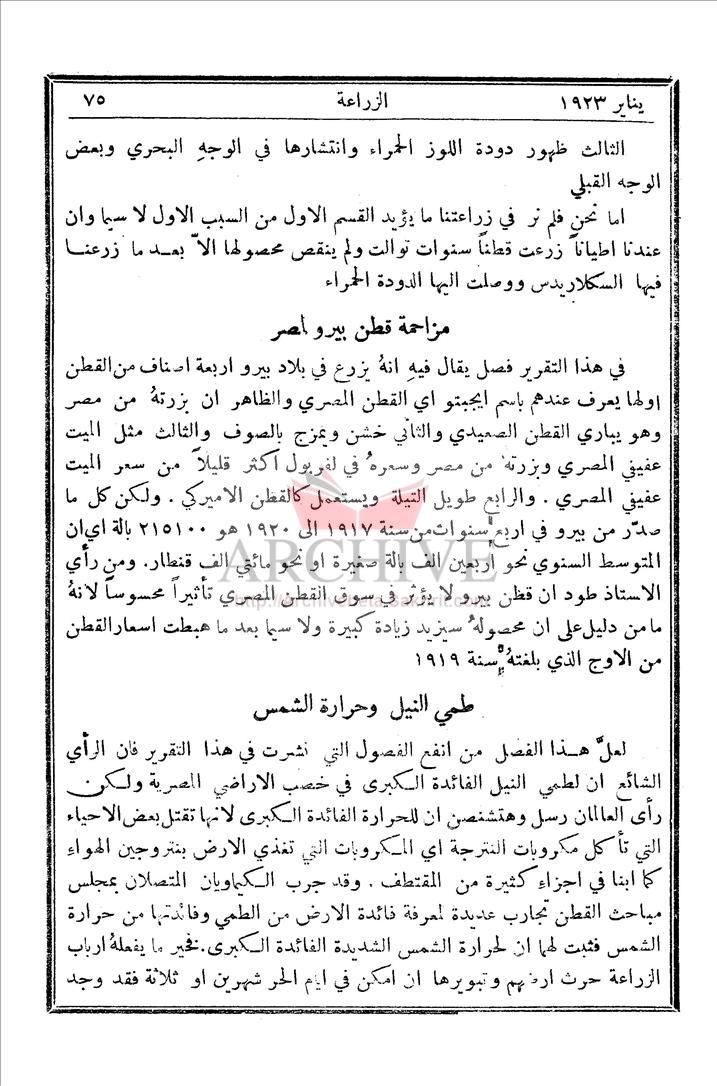 يناير ١٩٢٣ الزراعة ٧٥
الثالث ظهور دودة اللوز الحمراء وانتشارها في الوجه البحري وبعض
الوجه القبلي
اما نحن فلم نر في زراعتنا ما يؤيد القسم الاول من السبب الاول لا سيما وان
عندنا اطياناً زرعت قطناً سنوات توالت ولم ينقص محصولها الاّ بعد ما زرعنا
فيها السكلاريدس ووصلت اليها الدودة الحمراء
مزاحمة قطن بيرو لمصر
في هذا التقرير فصل يقال فيهِ انهُ يزرع في بلاد بيرو اربعة اصناف من القطن
اولها يعرف عندهم باسم ايجبتو اي القطن المصري والظاهر ان بزرتهُ من مصر
وهو يباري القطن الصعيدي والثاني خشن ويمزج بالصوف والثالث مثل الميت
عفيفي المصري وبزرتهُ من مصر وسعرهُ في لفربول اكثر قليلاً من سعر الميت
عفيفي المصري . والرابع طويل التيلة ويستعمل كالقطن الاميركي . ولكن كل ما
صدّر من بيرو في اربع سنوات من سنة ١٩١٧ الى ١٩٢٠ هو ٢١٥١٠٠ بالة اي ان
المتوسط السنوي نحو اربعين الف بالة صغيرة او نحو مائتي الف قنطار. ومن رأي
الاستاذ طود ان قطن بيرو لا يؤثر في سوق القطن المصري تأثيراً محسوساً لانهُ
ما من دليل على ان محصولهُ سيزيد زيادة كبيرة ولا سيما بعد ما هبطت اسعار القطن
من الاوج الذي بلغتهُ سنة ١٩١٩
طمي النيل وحرارة الشمس
لعلَّ هذا الفصل من انفع الفصول التي نشرت في هذا التقرير فان الرأي
الشائع ان لطمي النيل الفائدة الكبرى في خصب الاراضي المصرية ولكن
رأى العالمان رسل وهتشنصن ان للحرارة الفائدة الكبرى لانها تقتل بعض الاحياء
التي تأكل مكروبات النترجة اي المكروبات التي تغذي الارض بنتروجين الهواء
كما ابنا في اجزاء كثيرة من المقتطف . وقد جرب الكيماويان المتصلان بمجلس
مباحث القطن تجارب عديدة لمعرفة فائدة الارض من الطمي وفائدتها من حرارة
الشمس فثبت لهما ان لحرارة الشمس الشديدة الفائدة الكبرى. فخير ما يفعلهُ ارباب
الزراعة حرث ارضهم وتبويرها ان امكن في ايام الحر شهرين او ثلاثة فقد وجد
ARCHIVE
http://Archivebeta.Sakhrit.com